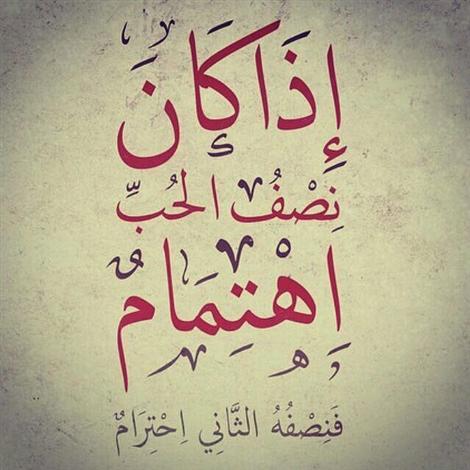 إِذَا كَانَ
نِصْفُ الحُبِّ
اِهْتِمَامٌ
فَنِصْفُهُ الثَّانِي اِحْتِرَامٌ